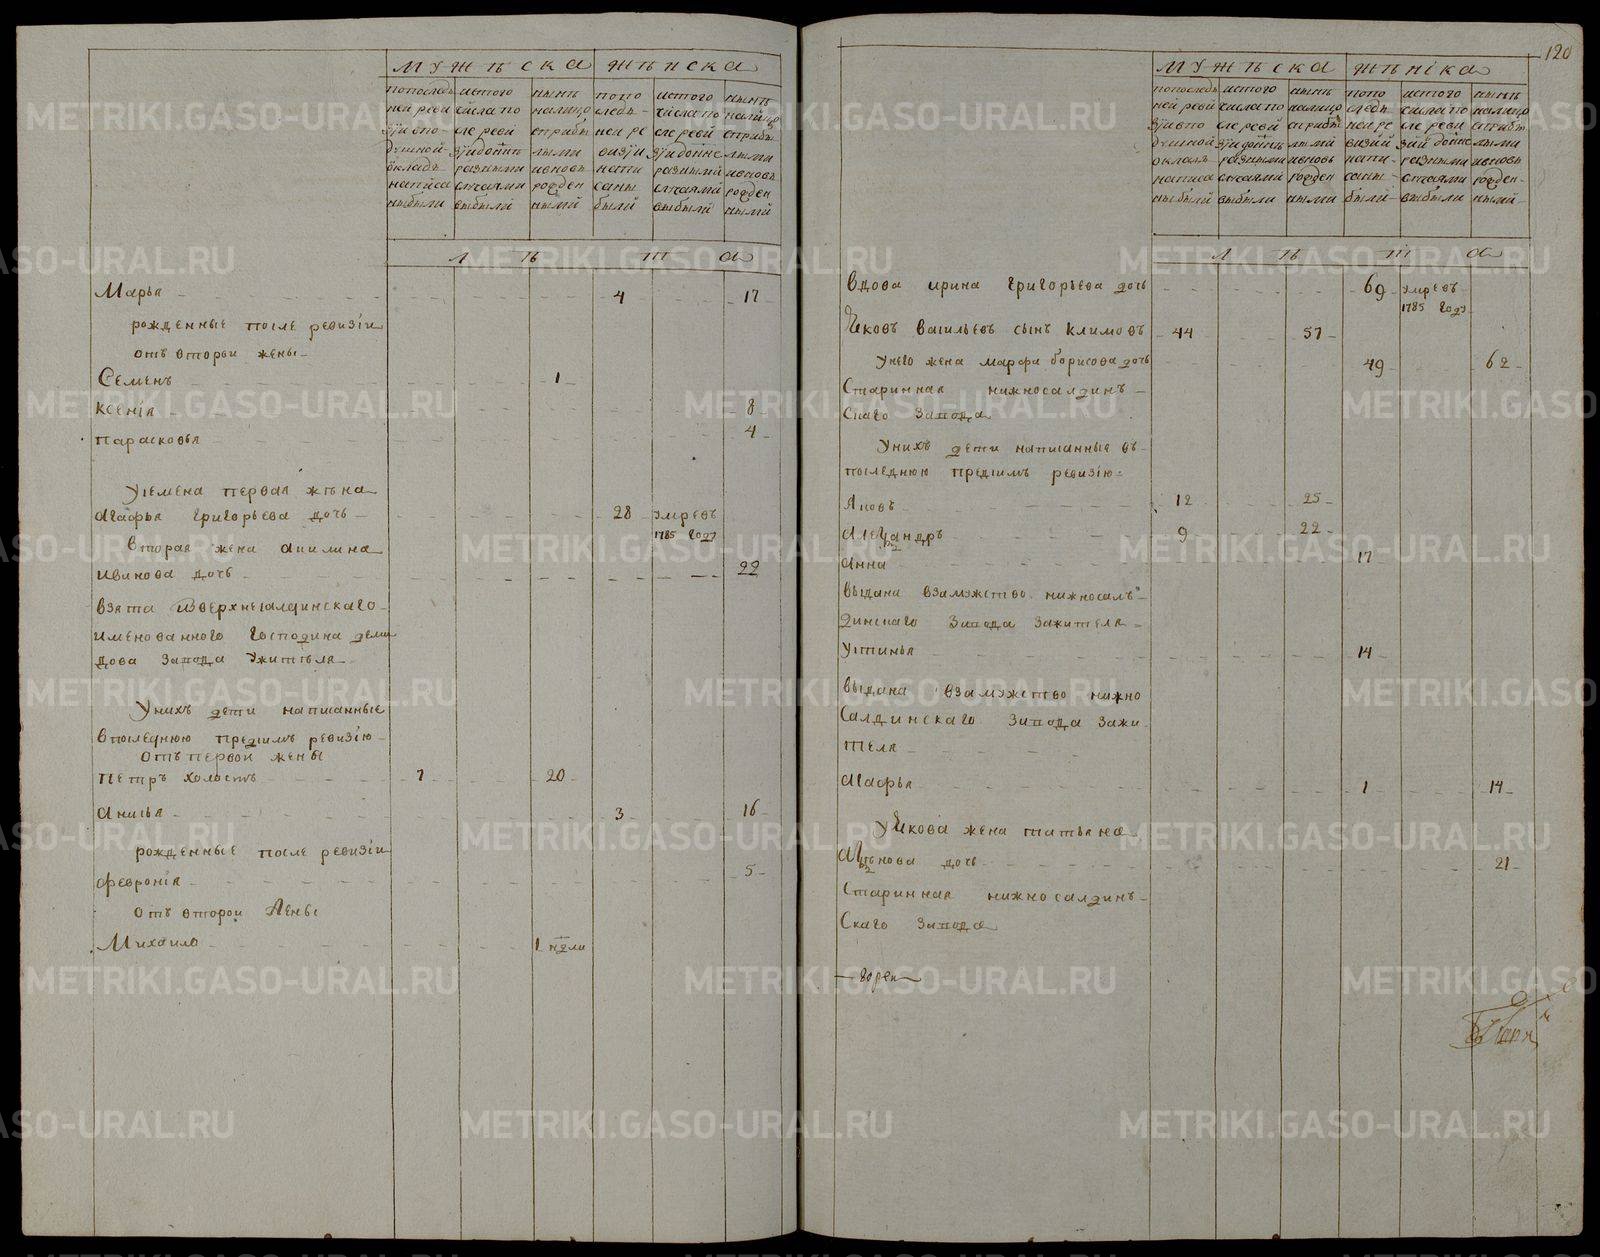 мужеска женска
попоследъ
ней реви
зуи впо
душной
окладъ
написа
ны были
истого
числа по
сле реви
зуи до нне
разными
случаями
выбыли
нынѣ
налицо
сприбы
лыми
и вновь
рожден
ными
попо
следъ
ней ре
визуи
напи
саны
были
истого
числа по
сле реви
зуи до нне
разными
случаями
выбыли
нынѣ
налицо
сприбы
лыми
и вновь
рожден
ными
лѣта
Марья 4 17
рожденные после ревизiи
отъ второй жены
Семенъ 1
Ксенiя 8
Парасковья 4
Усемена первая жена
Агафья Григорьева дочь 28 умре въ
1785 году
Вторая жена Акилина
Иванова дочь 22
взята изверхнесалдинскаго
именованного господина деми
дова завода ужителя
Унихъ дети написанные
в последнюю предсимъ ревизiю
отъ первой жены
Петръ холостъ 7 20
Анисья 3 16
рожденные после ревизiи
Феврониiя 5
отъ второй жены
Михаило 1 нѣдли
120
мужеска женска
попоследъ
ней реви
зуи впо
душной
окладъ
написа
ны были
истого
числа по
сле реви
зуи до нне
разными
случаями
выбыли
нынѣ
налицо
сприбы
лыми
и вновь
рожден
ными
попо
следъ
ней ре
визий
напи
саны
были
истого
числа по
сле реви
зий до нне
разными
случаями
выбыли
нынѣ
налицо
сприбы
лыми
и вновь
рожден
ными
лѣта
Вдова Ирина Григорьева дочь 69 умре въ
1785 году
Яковъ Васильевъ сынъ Климовъ 44 57
Унего жена Марфа Борисова дочь 49 62
Старинная нижносалдинъ
скаго завода
Унихъ дети написанные въ
последнюю предсимъ ревизiю
Яковъ 12 25
Алеѯандръ 9 22
Анна 17
Выдана взамужство нижносалъ
динскаго завода зажителя
Устинья 14
Выдана взамужство нижно
Салдинскаго завода зажи
теля
Агафья 1 14
Уякова жена Татьяна
дочь 21
Старинная нижносалдинъ
скаго завода